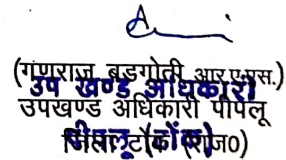 (गणराज बडगोती आर.ए.स.)
उप खण्ड अधिकारी
उपखण्ड अधिकारी पीपलू
पीपलू (टोंक)
जिला टोंक (राज0)